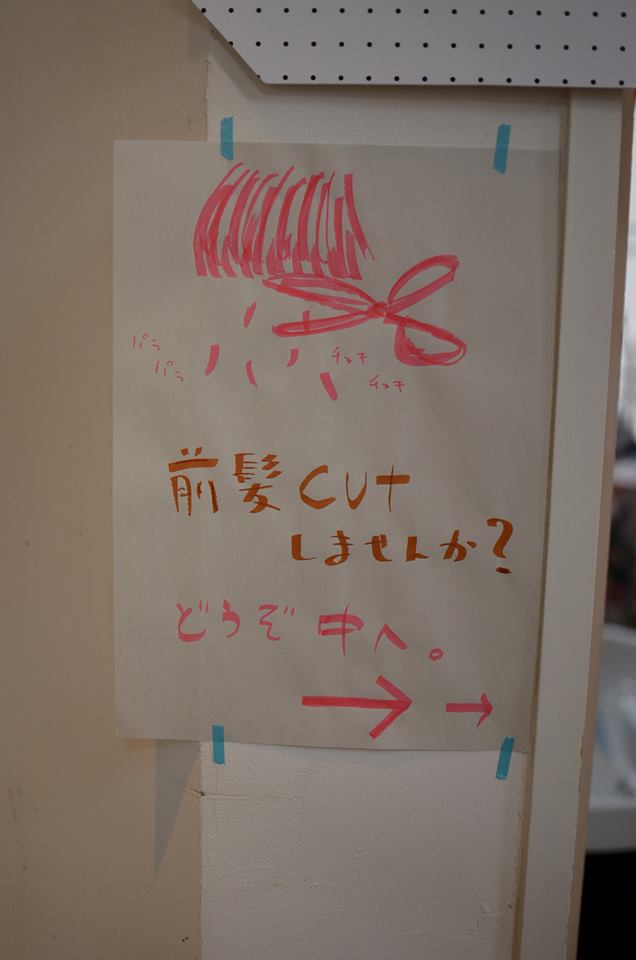 パラ
パラ
チョキ
チョキ
前髪cut
しませんか?
どうぞ中へ。